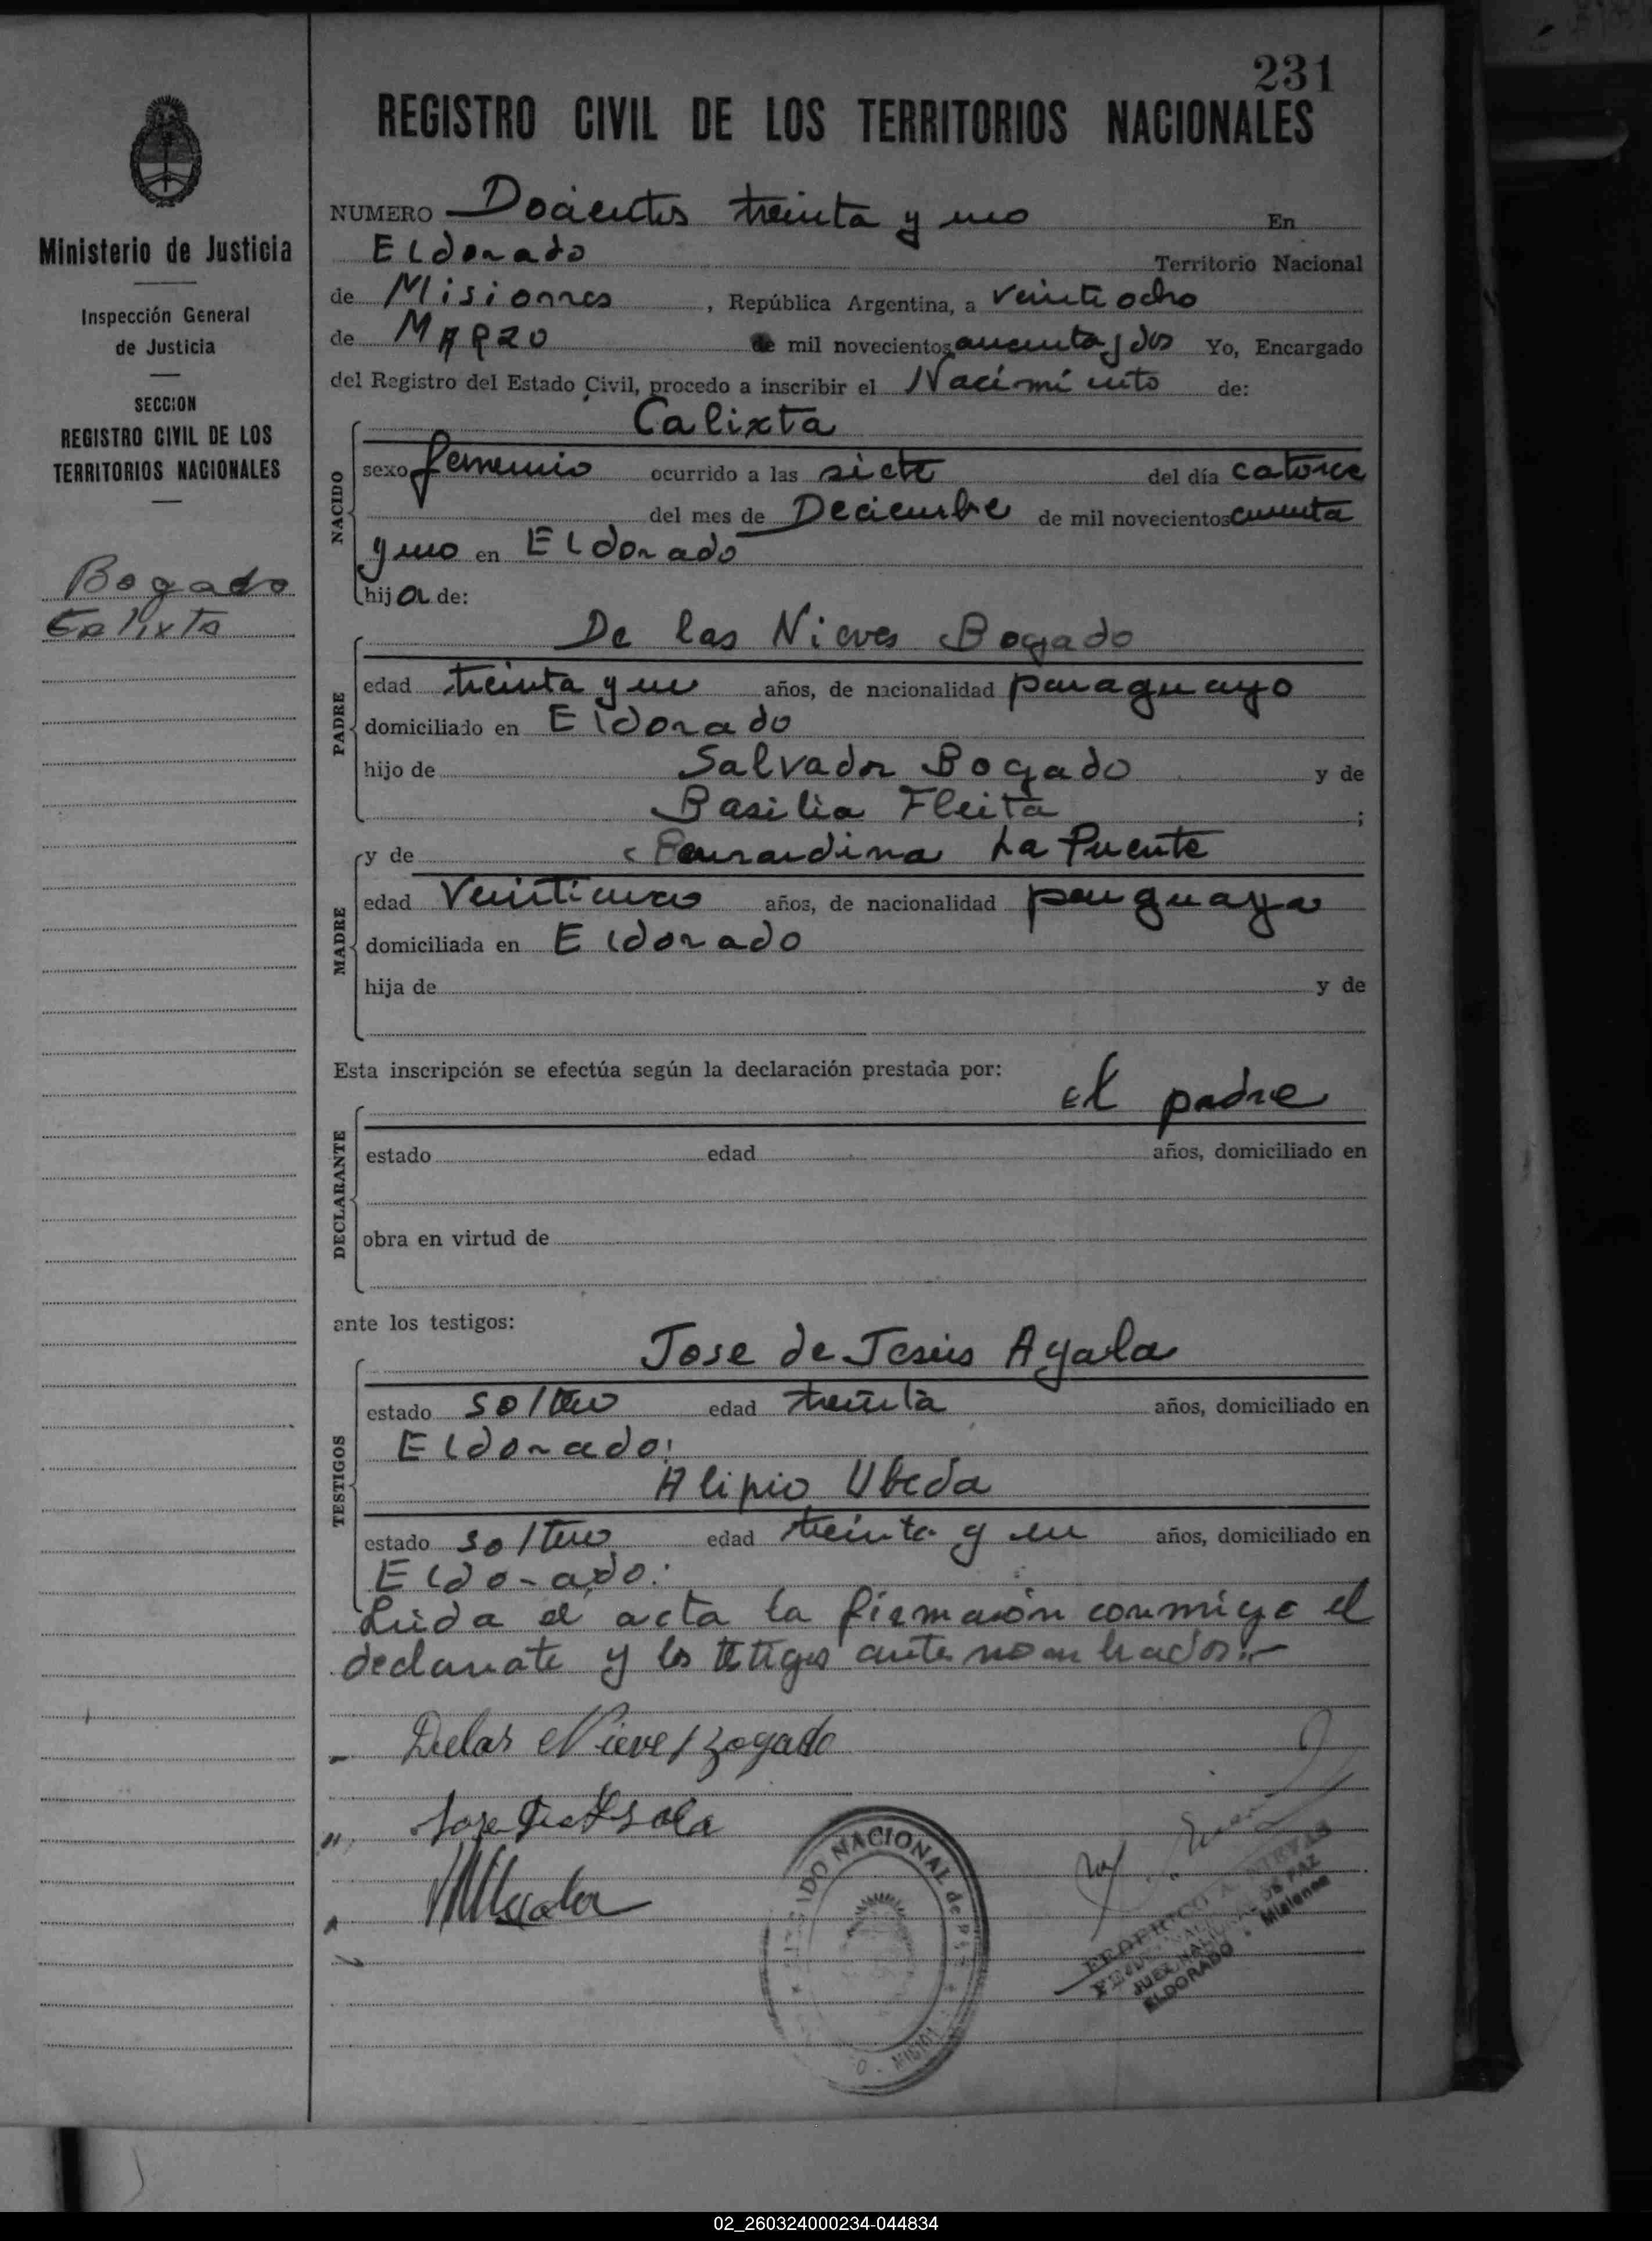 231
REGISTRO CIVIL DE LOS TERRITORIOS NACIONALES
Ministerio de Justicia
Inspección General
de Justicia
SECCION
REGISTRO CIVIL DE LOS
TERRITORIOS NACIONALES
Bogado
Calixta
NUMERO Docientos treinta y uno En
Eldorado Territorio Nacional
de Misiones, República Argentina, a veinte ocho
de MARZO de mil novecientos cincuenta y dos Yo, Encargado
del Registro del Estado Civil, procedo a inscribir el Nacimiento de:
NACIDO
Calixta
sexo femenino ocurrido a las siete del día catorce
del mes de Deciembre de mil novecientos cuenta
y uno en Eldorado
hija de:
PADRE
De las Nieves Bogado
edad treinta y un años, de nacionalidad paraguayo
domiciliado en Eldorado
hijo de Salvador Bogado y de
Basilia Fleita ;
MADRE
y de La Puente
edad años, de nacionalidad paraguaya
domiciliada en Eldorado
hija de y de
Esta inscripción se efectúa según la declaración prestada por:
DECLARANTE
el padre
estado edad años, domiciliado en
obra en virtud de
ante los testigos:
TESTIGOS
Jose de Jesús Ayala
estado soltero edad treinta años, domiciliado en
Eldorado:
Alipio Ubeda
estado soltero edad treinta y un años, domiciliado en
Eldorado:
Leida el acta la firmarón conmigo el
declarate y los tetigos ante nombrados.-
De las Nieve Bogado
NACIONAL de PAZ
FEDERICO A.
JUEZ NACIONAL DE PAZ
ELDORADO - Misiones
02_260324000234-044834